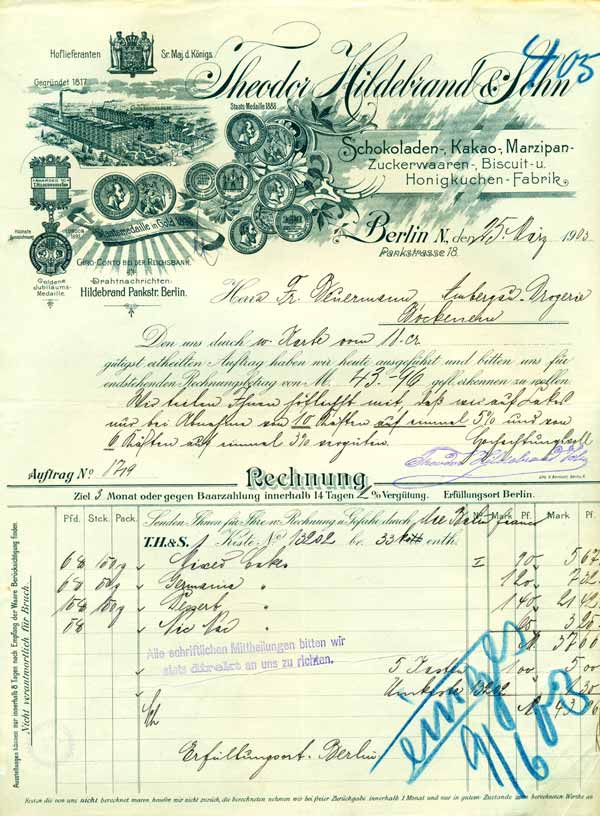 Hoflieferanten Sr. Maj. d. Königs
Gegründet 1817.
Theodor Hildebrand & Sohn
405
Staats Medaille 1888.
Schokoladen-, Kakao-, Marzipan-
Zuckerwaaren-, Biscuit- u.
Honigkuchen-Fabrik.
Staatsmedaille in Gold 1896
Höchste Auszeichnung
LONDON 1891
Goldene Jubiläums-Medaille.
GIRO-CONTO BEI DER REICHSBANK.
Drahtnachrichten:
Hildebrand Pankstr. Berlin.
Berlin N, den 25 März 1903
Pankstrasse 18.
Herrn Fr. Ambergau-Drogerie
Bockenem
Den uns durch w. Karte vom 11. cr
gütigst ertheilten Auftrag haben wir heute ausgeführt und bitten uns für
endstehenden Rechnungsbetrag von M. 43.96 gefl. erkennen zu wollen
Wir teilen Ihnen höflichst mit, daß wir auf Cakes
nur bei Abnahme von 10 Kästen auf einmal 5% und von
6 Kästen auf einmal 3% vergüten. Hochachtungsvoll
Theodor Hildebrand & Sohn
Auftrag No. 1719
Rechnung
Ziel 3 Monat oder gegen Baarzahlung innerhalb 14 Tagen 2% Vergütung. Erfüllungsort Berlin.
Pfd. Stck. Pack. Senden Ihnen für Ihre w. Rechnung u. Gefahr durch Bahn franco Mark Pf. Mark Pf.
T.H.&S. 1 Kiste No 13202 be. 33 enth.
Mixed Cakes I 90 5 67
Germania " 120 7 32
Dessert " 140 21 42
Nic Nac 65 3 25
M. 37 66
Alle schriftlichen Mittheilungen bitten wir
stets direkt an uns zu richten.
5 Kasten 1 00 5 00
13202 1 30
M. 43 96
Erfüllungsort Berlin
9/6 03
Ausstellungen können nur innerhalb 8 Tagen nach Empfang der Waare Berücksichtigung finden.
Nicht verantwortlich für Bruch.
Kisten die von uns nicht berechnet waren, kaufen wir nicht zurück, die berechneten nehmen wir bei freier Zurückgabe innerhalb 1 Monat und nur in gutem Zustande zum berechneten Werthe an